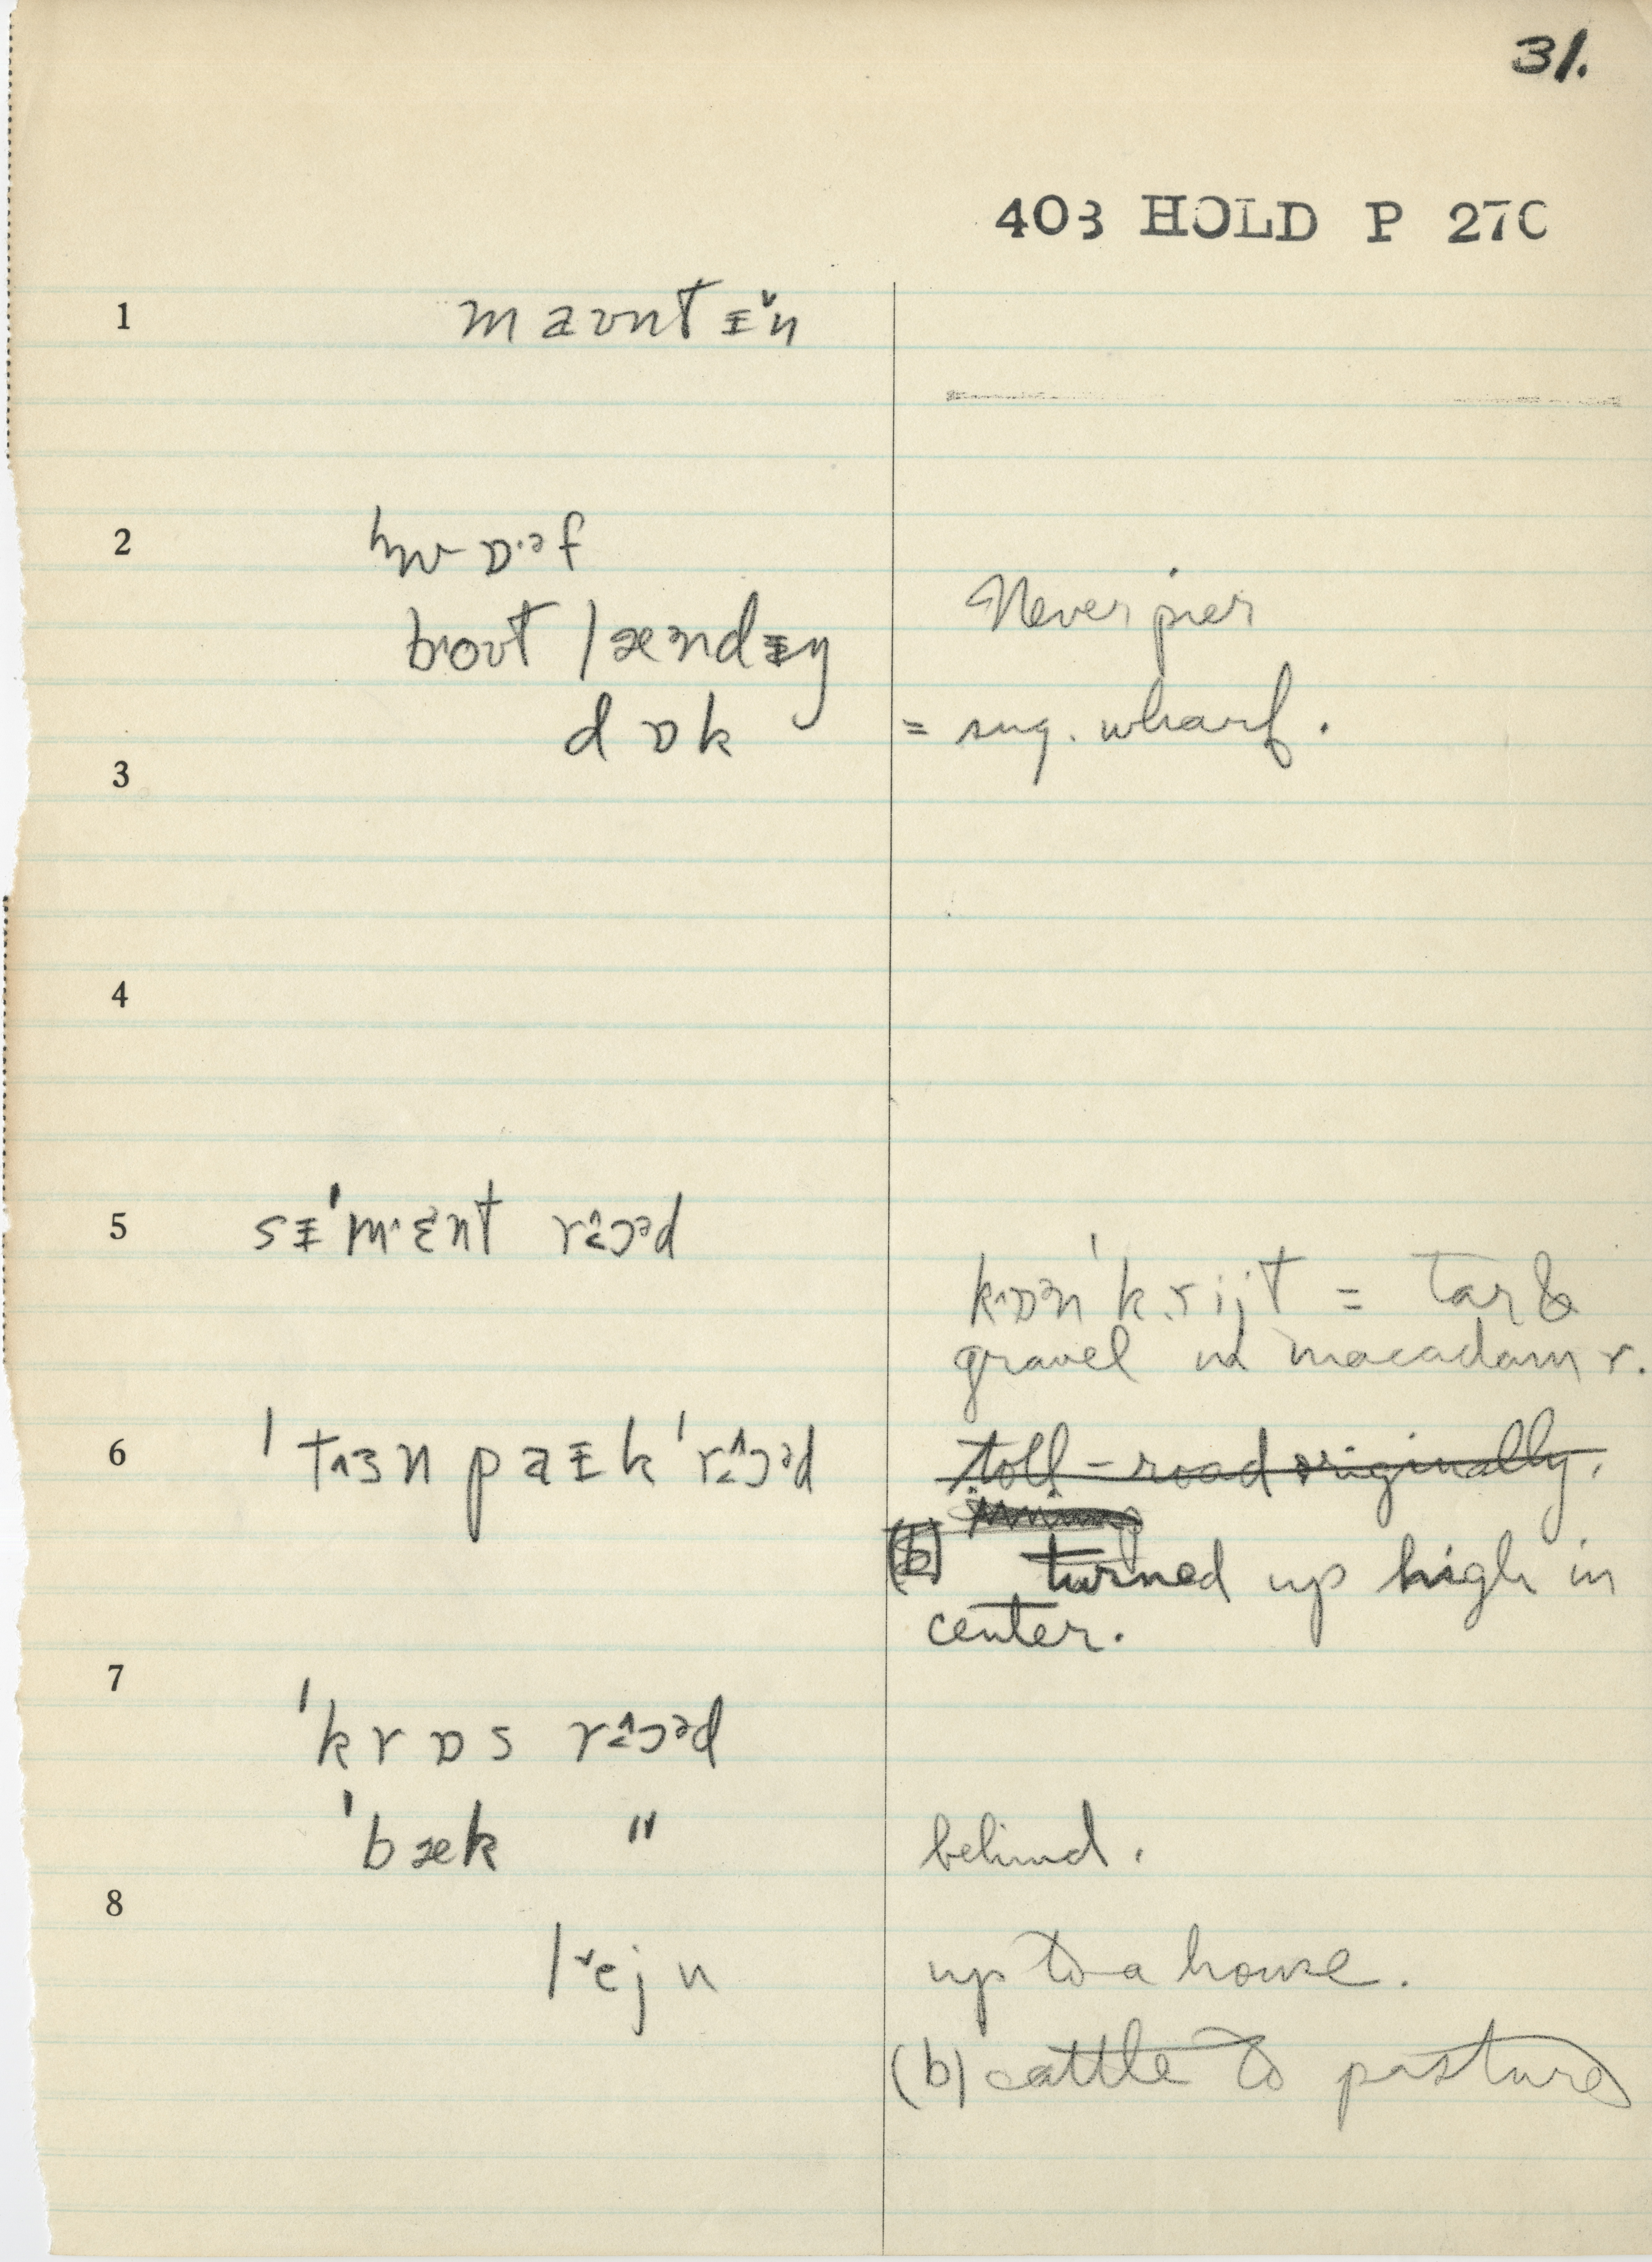 31.
403 HOLD P 270
1 maʊntɪ̵̌n
2 hwɒ·ᵊf
boʊt læᵊndɪ̵ŋ Never pier
dɒk = sug. wharf.
3
4
5 sɪ̵ˈmɛnt rɔᵊd
kɒᵊnˈkrijt = tar &
gravel macadam r.
6 ˈtɜn paɪ̵k ˈrɔᵊd toll-road originally.
(b) turned up high in
center.
7
ˈkrɒs rɔᵊd
ˈbæk " behind.
8
lejn up to a house.
(b) cattle to pasture